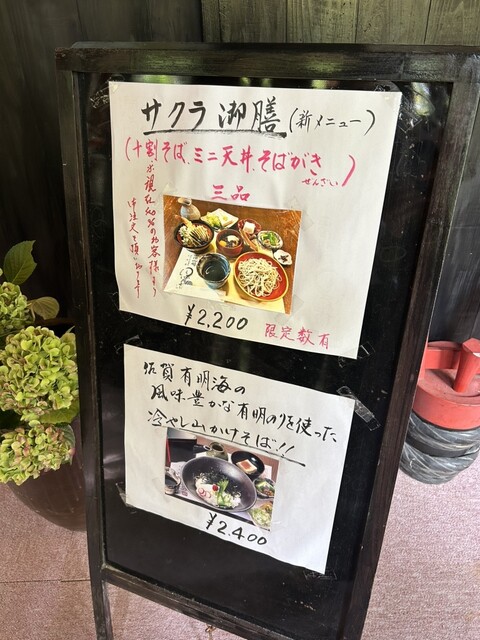 サクラ御膳(新メニュー)
(十割そば、ミニ天丼、そばがき
ぜんざい)
三品
¥2,200
限定数有
佐賀有明海の
風味豊かな有明のりを使った
冷やし山かけそば!!
¥2,400